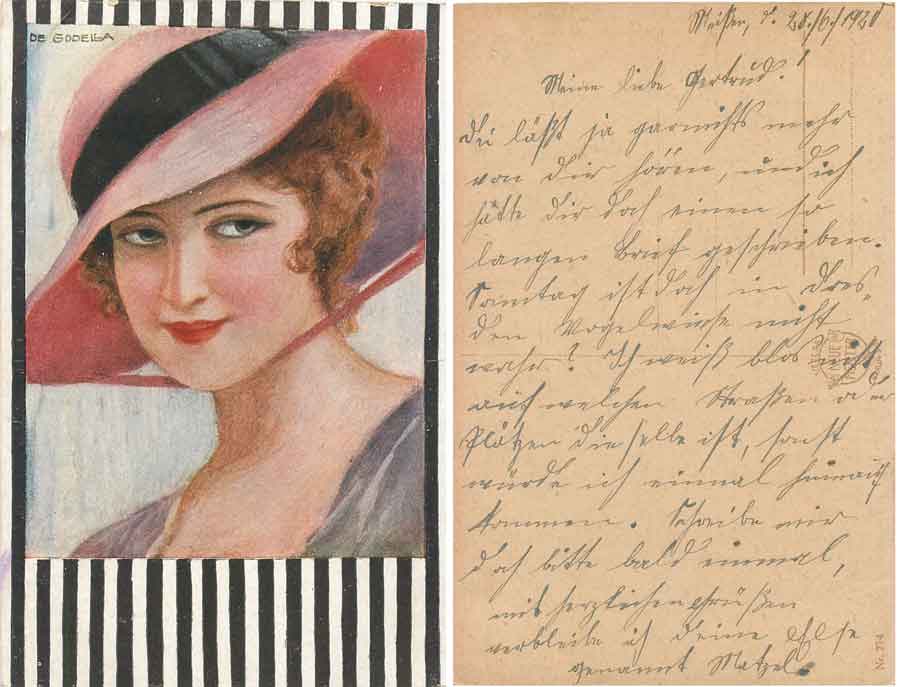 DE GODELLA
Meißen, d. 28./6./1921
Meine liebe Gertrud!
Du läßt ja garnichts mehr
von dir hören, und ich
hatte dir doch einen so
langen Brief geschrieben.
Sonntag ist doch in Dres-
den Vogelwiese nicht
wahr? Ich weiß blos nicht
auf welchen Straßen oder
Plätzen dieselbe ist, sonst
würde ich einmal hinauf
kommen. Schreibe mir
doch bitte bald einmal,
mit herzlichen Grüßen
verbleibe ich deine Else
genannt Matzel.
Nr. 274